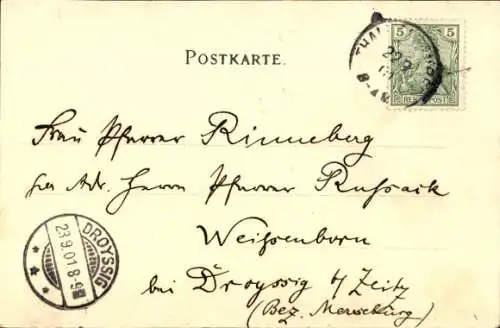 POSTKARTE.
5 5
REICHSPOST
22 9
8-9
Frau Pfarrer Rinneberg
per Adr. Herrn Pfarrer Russack
Weissenborn
bei Droyssig b/ Zeitz
(Bez. Merseburg)
DROYSSIG
23.9.01.8-9